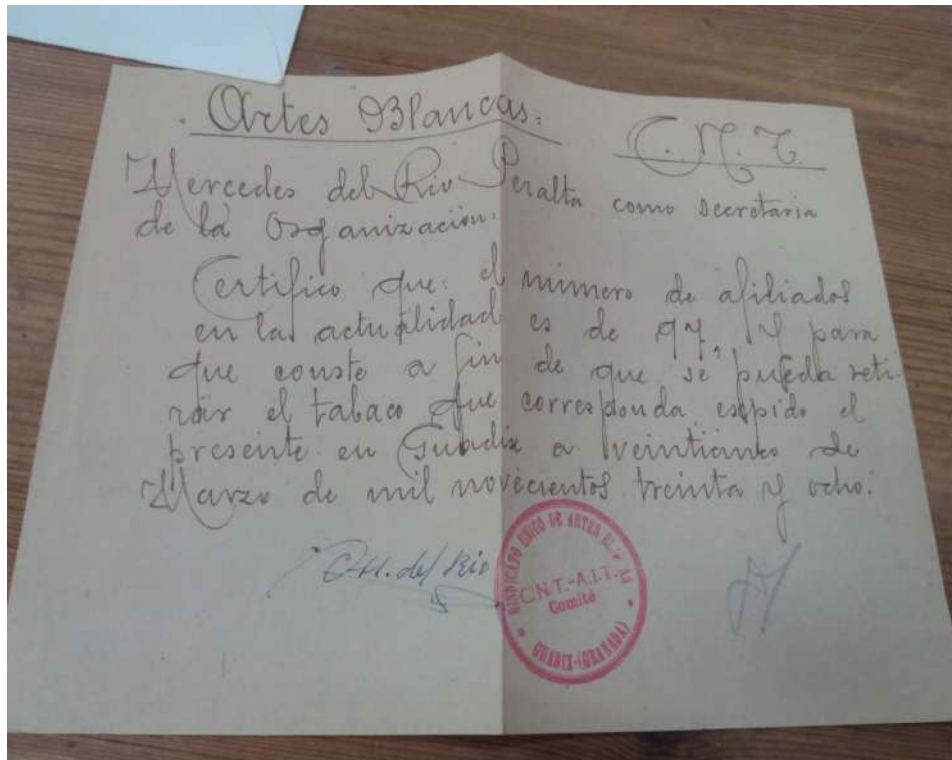 Artes Blancas:
C.N.T.
Mercedes del Rio Peralta como Secretaria
de la Organización.
Certifico que: el número de afiliados
en la actualidad es de 97, y para
que conste a fin de que se pueda reti-
rar el tabaco que corresponda espido el
presente en Guadix a veinticinco de
Marzo de mil novecientos treinta y ocho.
M. del Rio
SINDICATO UNICO DE ARTES
C.N.T.-A.I.T.
Comité
GUADIX-(GRANADA)